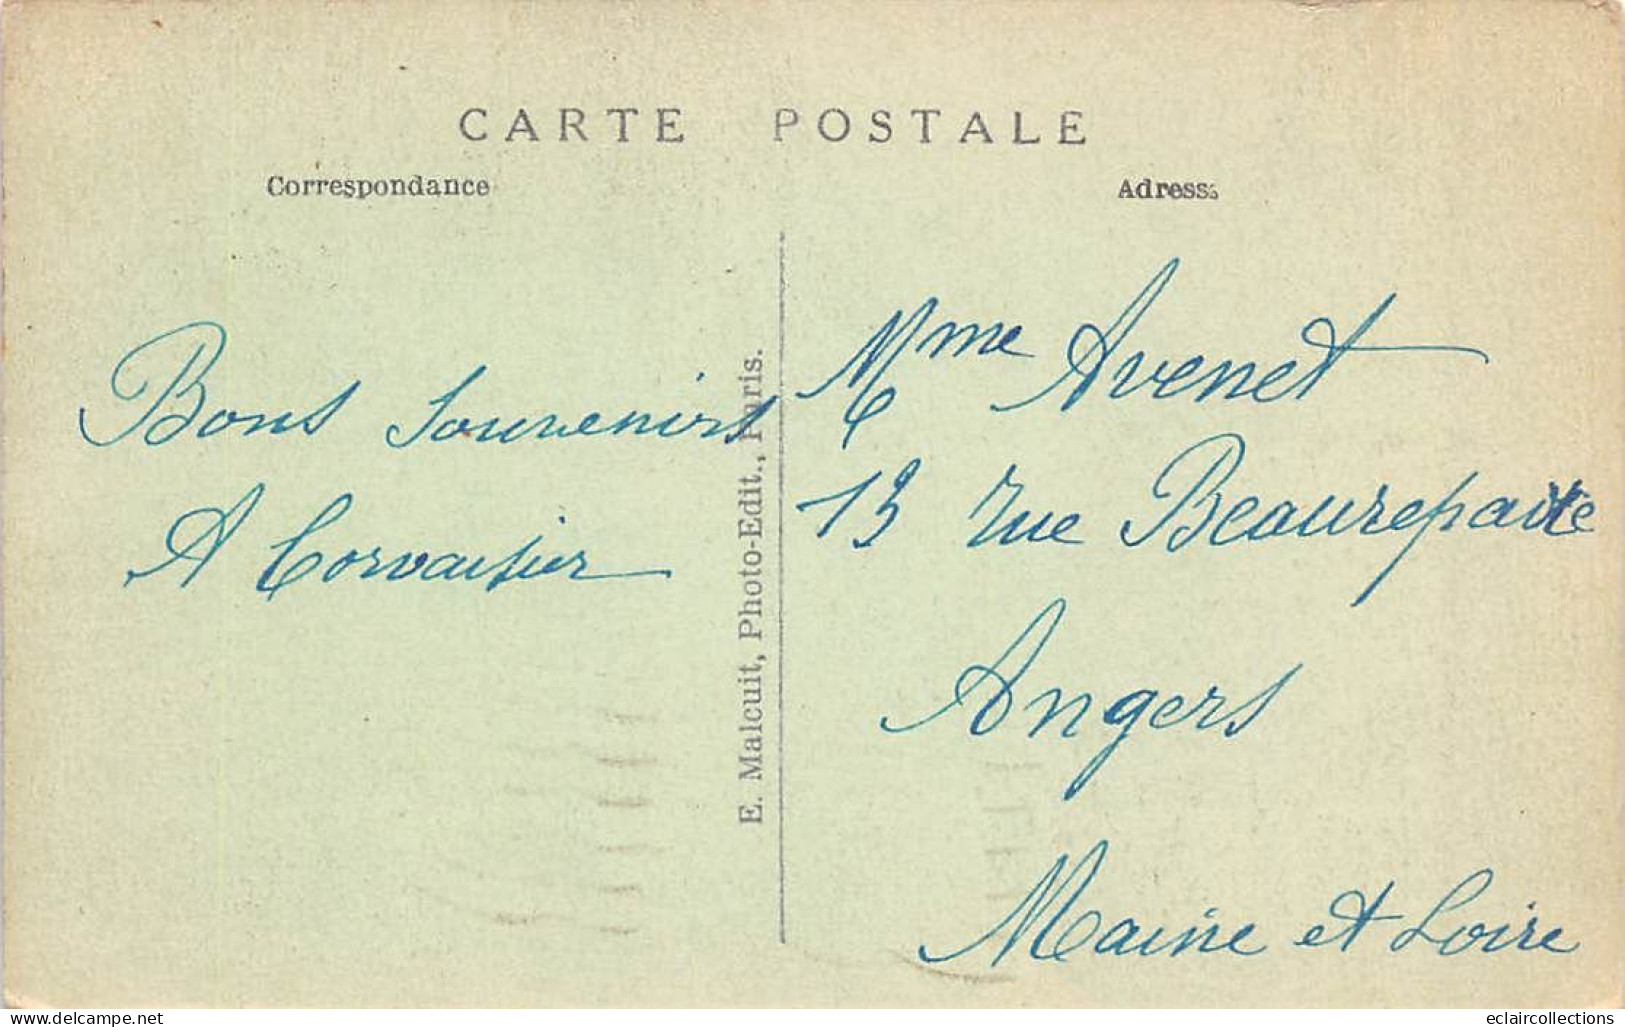 CARTE POSTALE
Correspondance
Adresse
Bons Souvenirs
A Corvaisier
E. Malcuit, Photo-Edit., Paris.
Mme Avenet
13 rue Beaurepaire
Angers
Maine et Loire
www.delcampe.net
eclaircollections